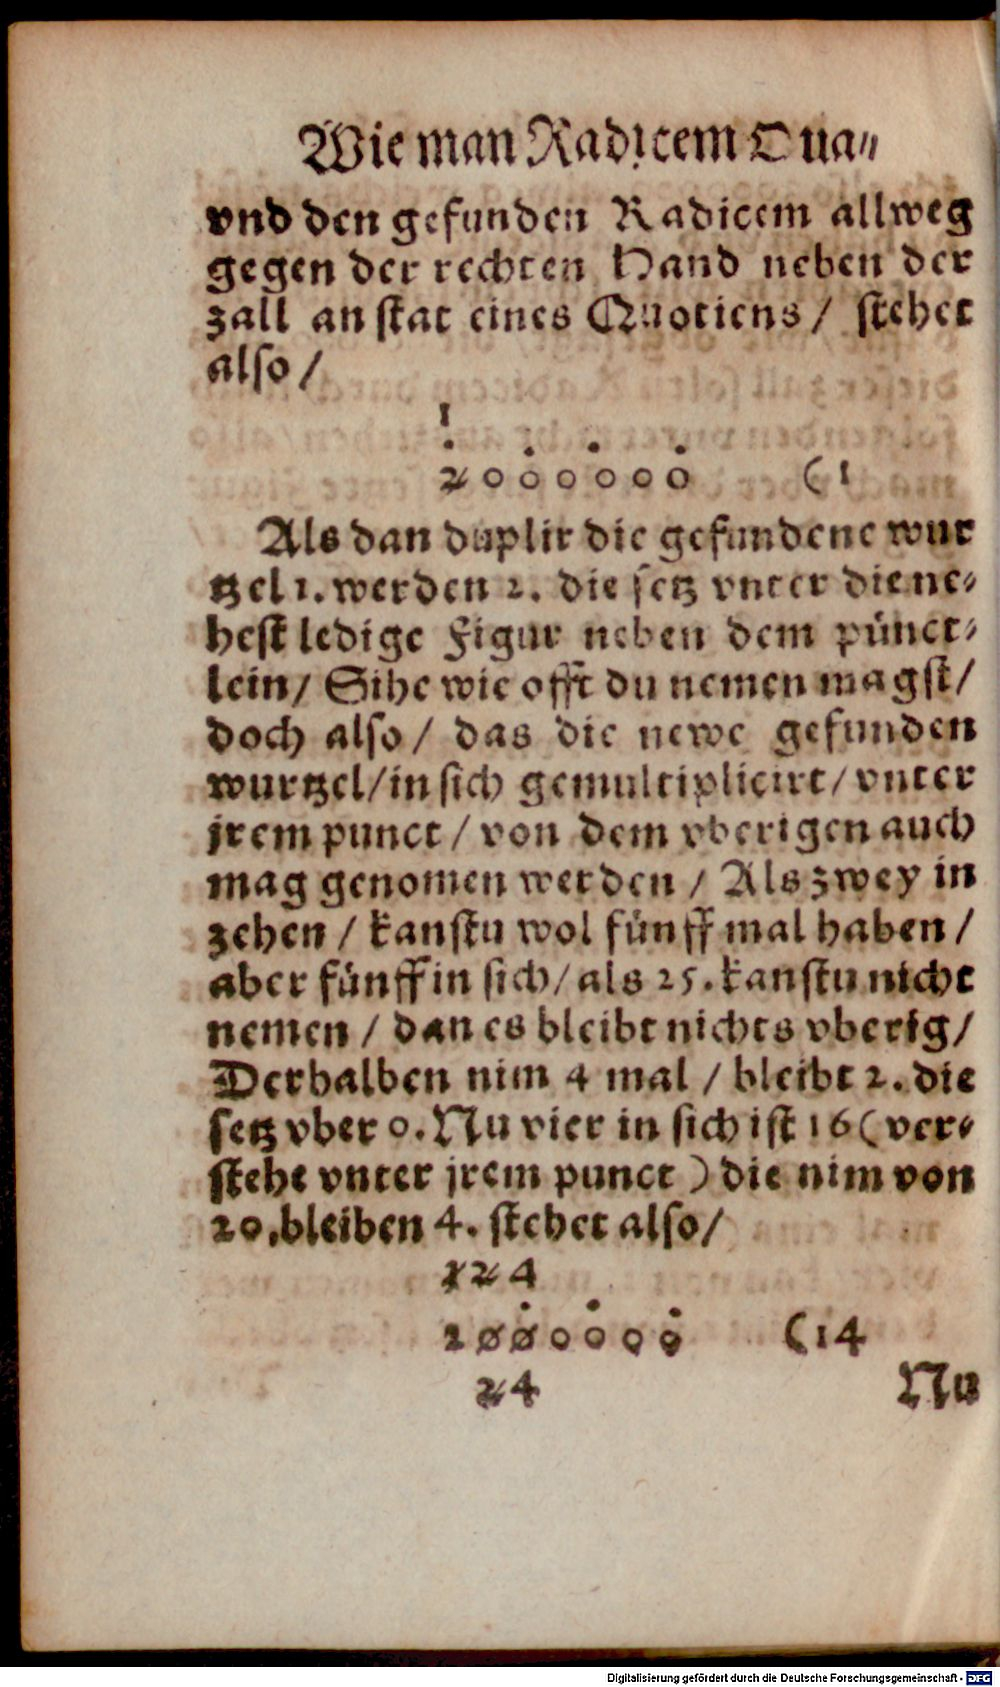 Wie man Radicem Qua⸗
vnd den gefunden Radicem allweg
gegen der rechten Hand neben der
zall an stat eines Quotiens / stehet
also /
1
. . . .
2000000 (1
Als dan duplir die gefundene wur
tzel 1. werden 2. die setz vnter die ne⸗
hest ledige Figur neben dem pünct⸗
lein / Sihe wie offt du nemen magst /
doch also / das die newe gefunden
wurtzel / in sich gemultiplicirt / vnter
jrem punct / von dem vberigen auch
mag genomen werden / Als zwey in
zehen / kanstu wol fünff mal haben /
aber fünff in sich / als 25. kanstu nicht
nemen / dan es bleibt nichts vberig /
Derhalben nim 4 mal / bleibt 2. die
setz vber 0. Nu vier in sich ist 16 ( ver⸗
stehe vnter jrem punct ) die nim von
20. bleiben 4. stehet also /
124
. . .
2000000 (14
24 Nu
Digitalisierung gefördert durch die Deutsche Forschungsgemeinschaft - DFG